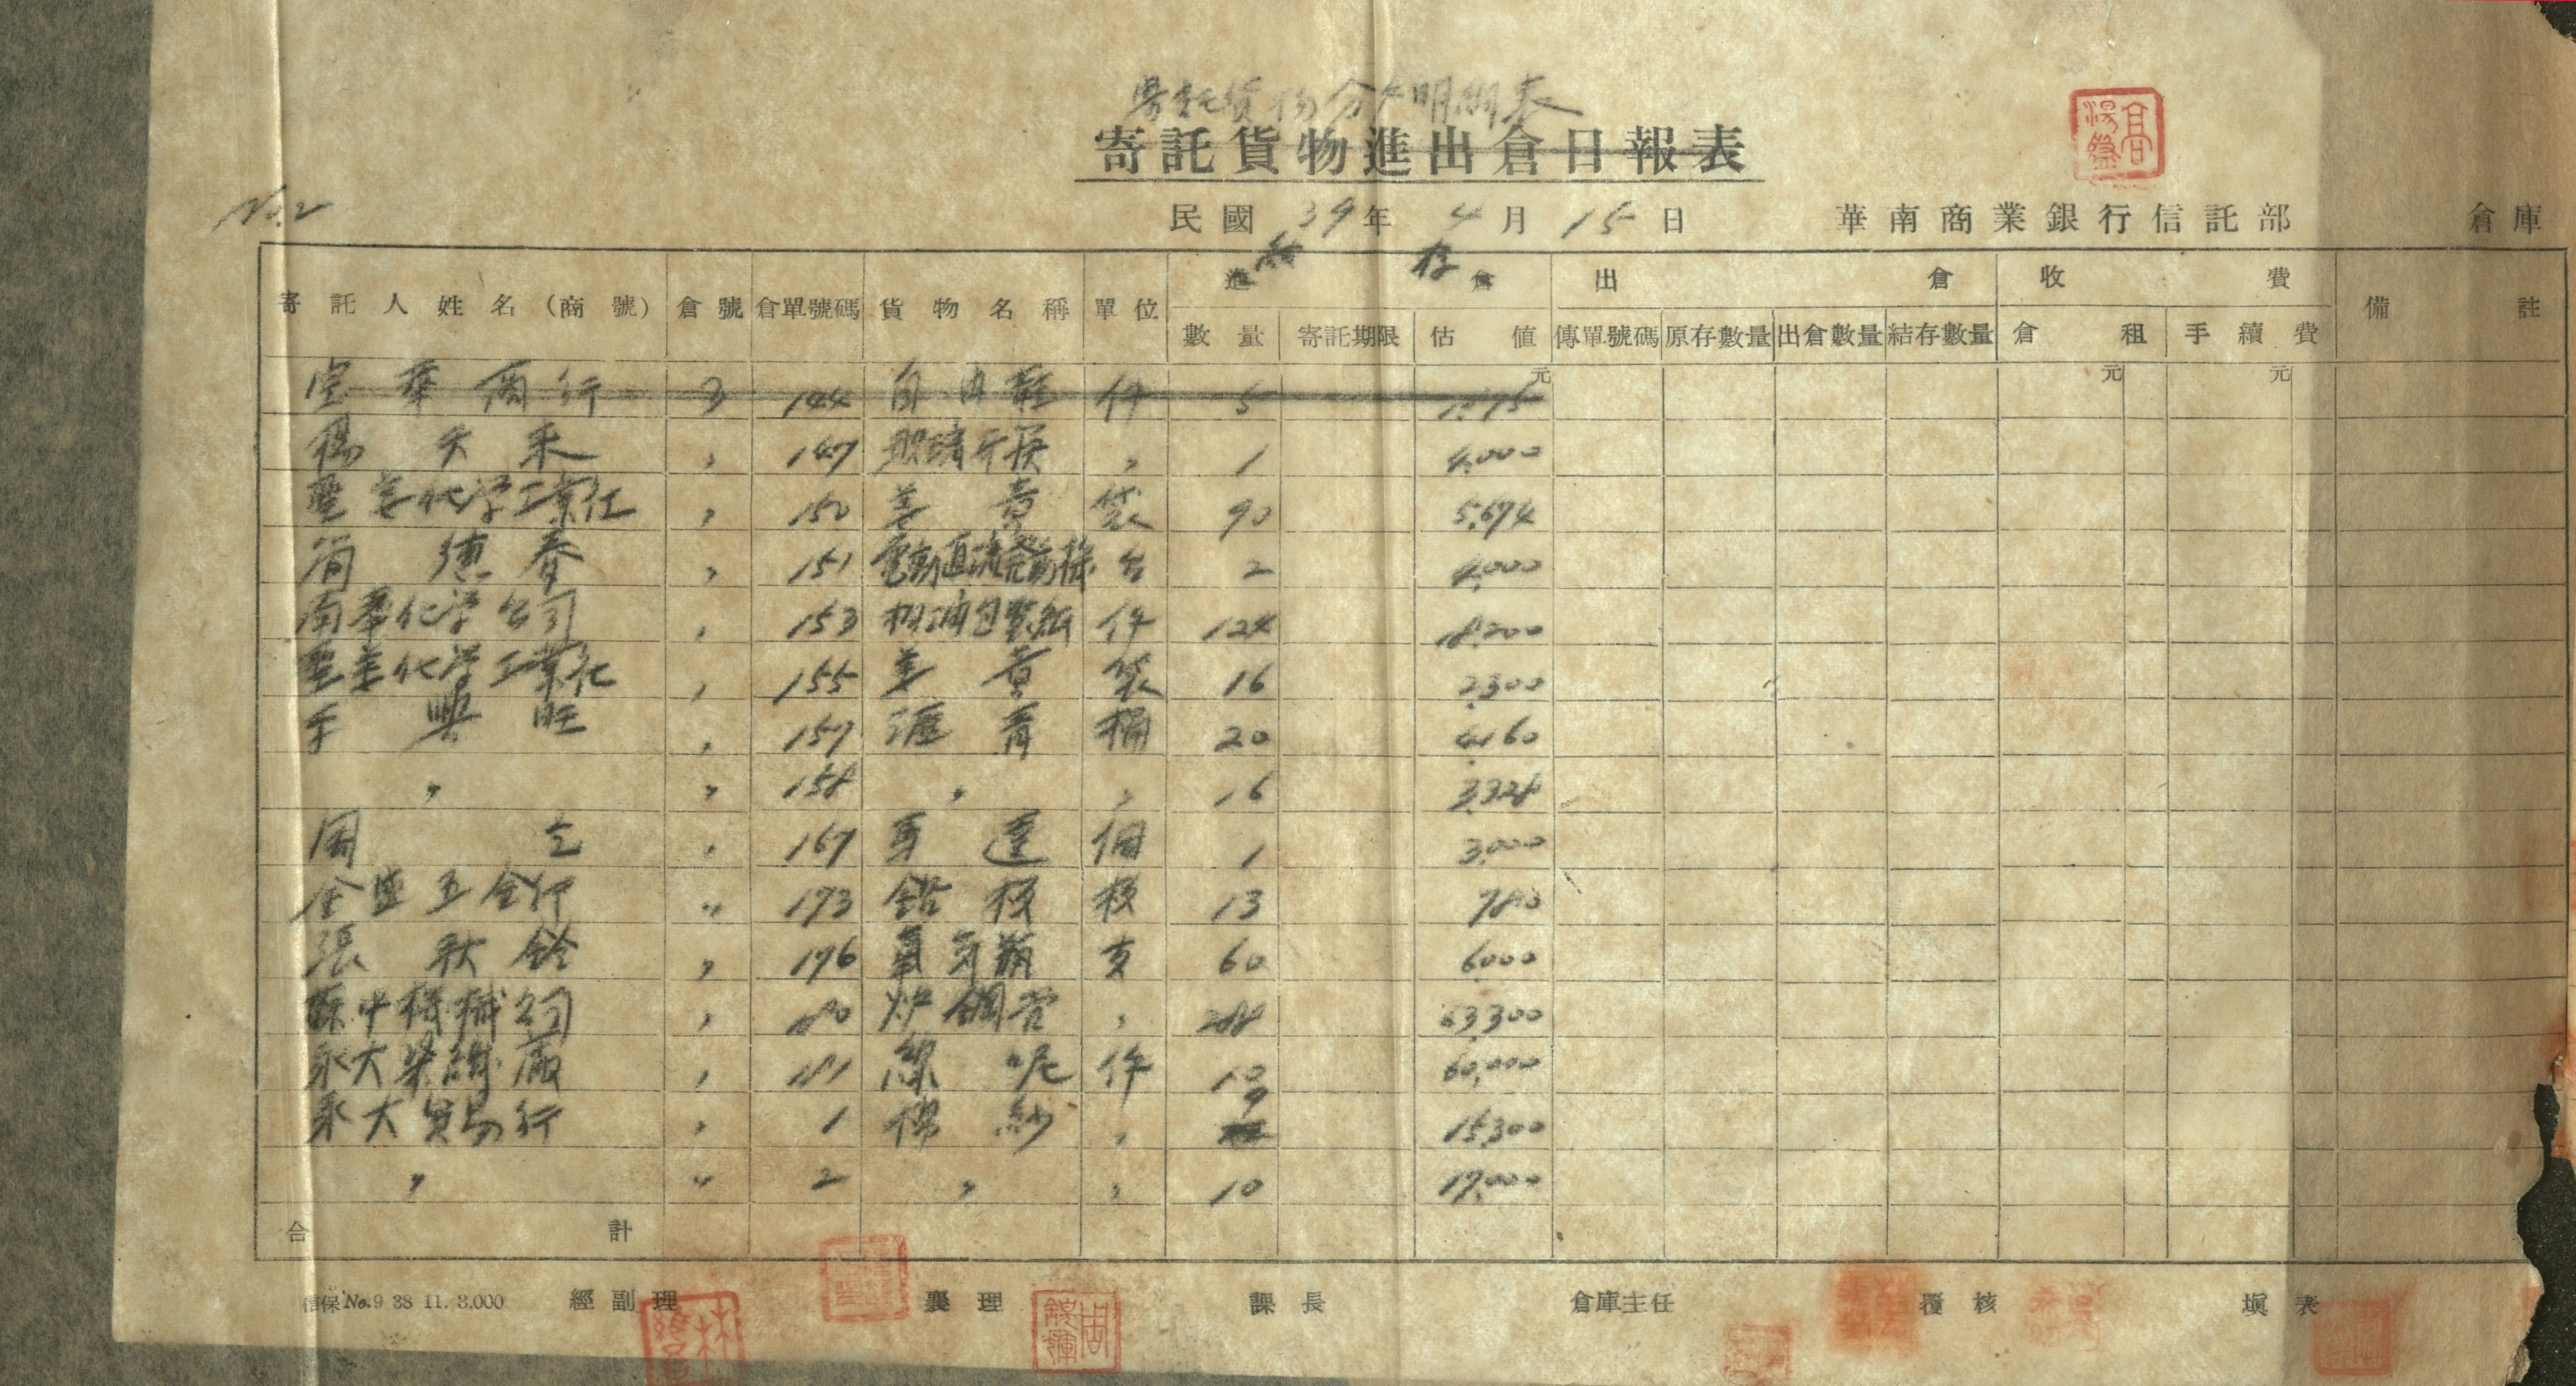 寄託貨物分戶明細表
寄託貨物進出倉日報表
No.2
民國 39 年 4 月 15 日 華南商業銀行信託部 倉庫
結 存
進 倉 出 倉 收 費
寄託人姓名(商號) 倉號 倉單號碼 貨物名稱 單位 備註
數量 寄託期限 估值 傳單號碼 原存數量 出倉數量 結存數量 倉租 手續費
元 元 元
華商行 3 144 自由鞋 件 5
楊天来 〃 147 玻璃牙 〃 1 4,000
化学工業社 〃 150 姜黄 袋 90 5,674
簡德春 〃 151 電動直流発電機 台 2 4,000
南華化学公司 〃 153 柏油包装紙 件 124 18,200
化学工業社 〃 155 姜黄 袋 16 2,300
興旺 〃 157 瀝青 桶 20 4,160
〃 〃 158 〃 〃 16 3,328
周 〃 167 達 個 1 3,000
金五金行 〃 173 鉛板 板 13 780
張秋鈴 〃 176 氧気瓶 支 60 6000
機械公司 〃 180 炉鋼管 〃 63,300
永大染織廠 〃 181 呢 件 10 60,000
永大貿易行 〃 1 棉紗 〃 9 15,300
〃 〃 2 〃 〃 10 17,000
合計
信保 No.9 38 11. 3.000 經副理 襄理 課長 倉庫主任 覆核 填表